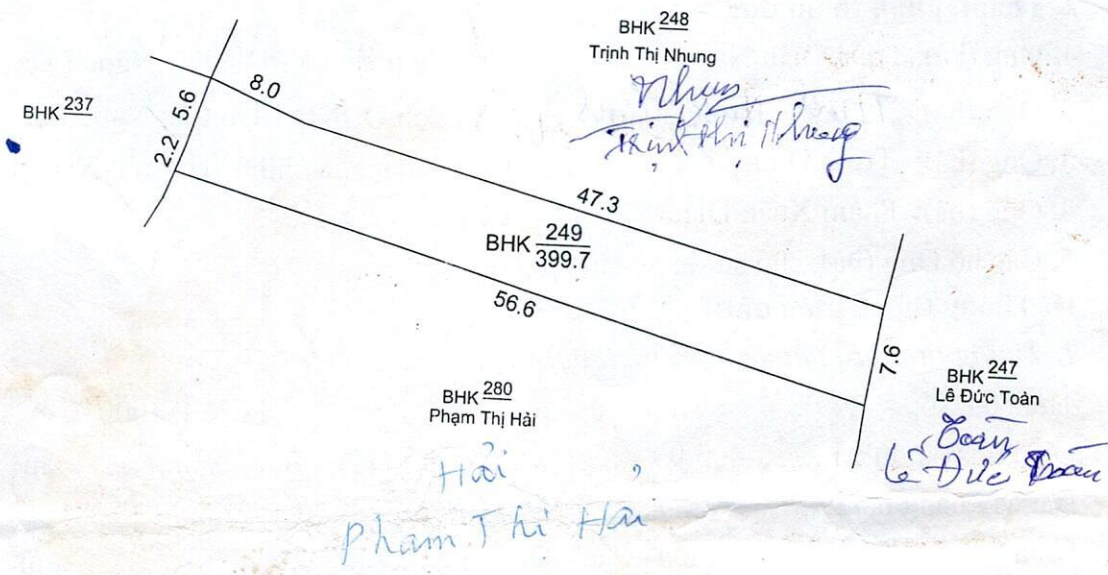 BHK 248
Trịnh Thị Nhung
Nhung
Trịnh Thị Nhung
8.0
BHK 237
5.6
2.2
47.3
BHK 249
399.7
56.6
7.6
BHK 247
Lê Đức Toản
Toản
Lê Đức Toản
BHK 280
Phạm Thị Hải
Hải
Phạm Thị Hải